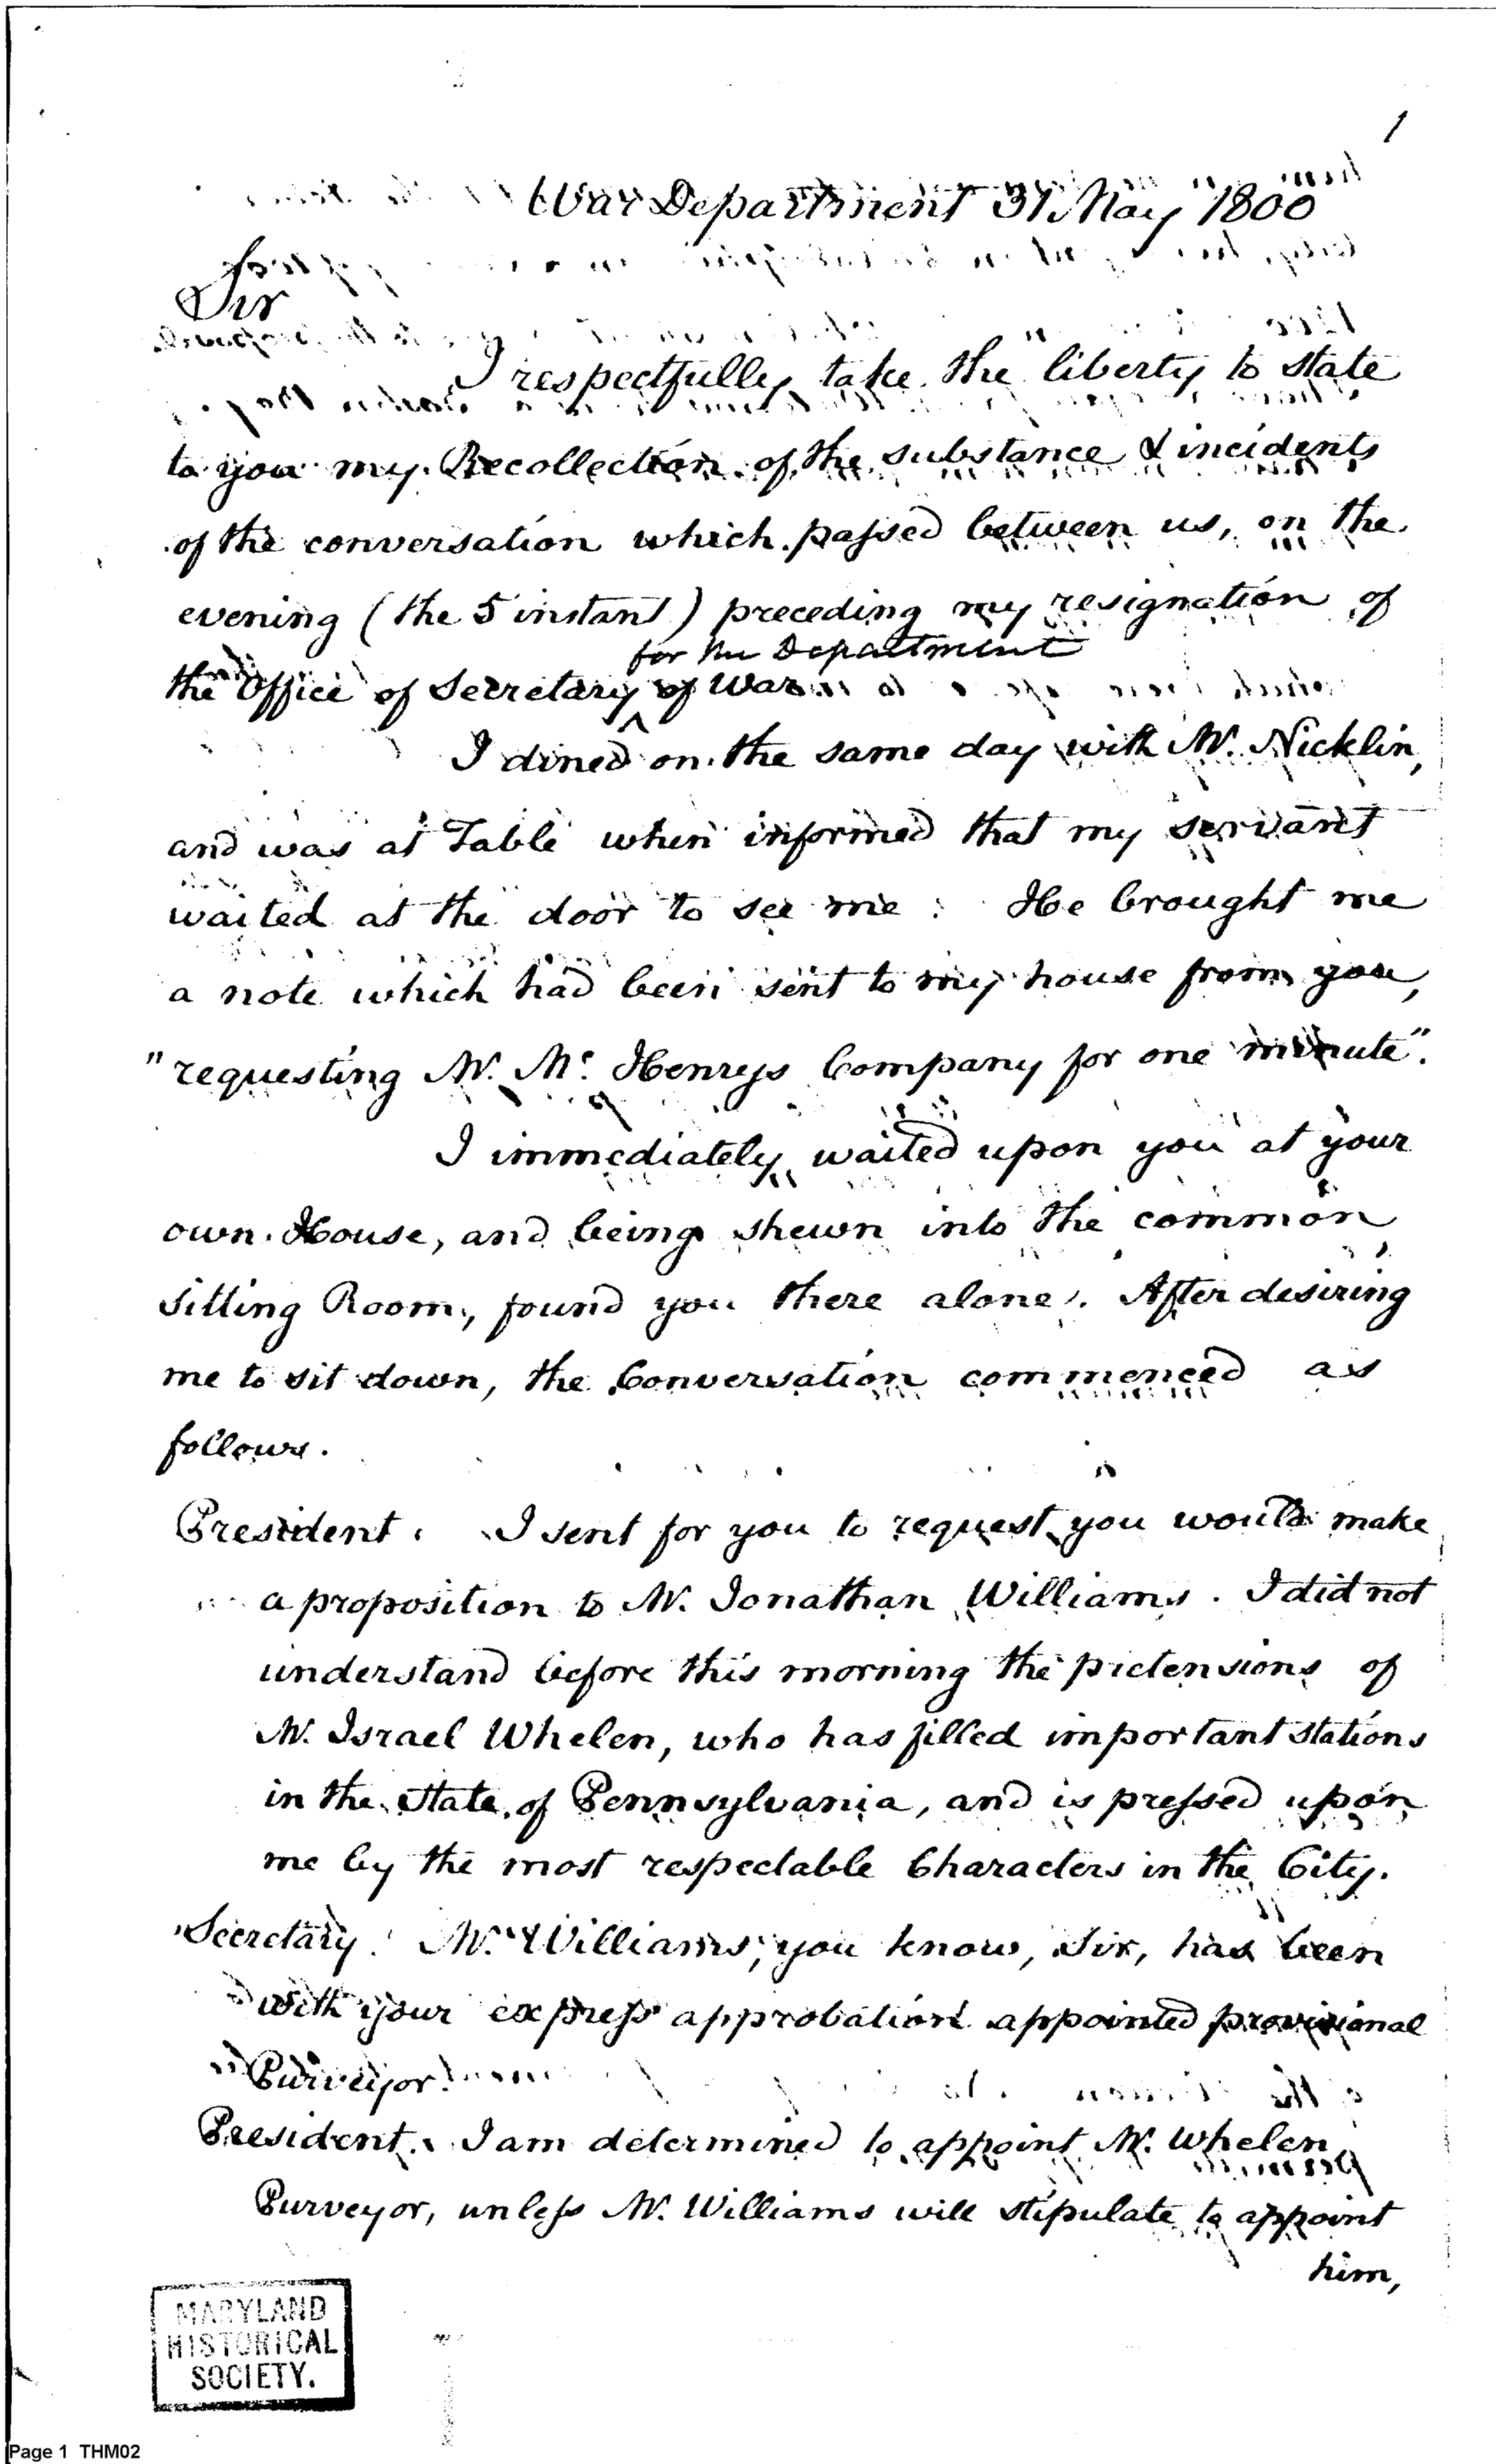 1
War Department 31 May 1800
Sir
I respectfully take the liberty to state
to you my Recollection of the substance & incidents
of the conversation which passed between us, on the
evening (the 5 instant) preceding my resignation of
for the Department
the Office of Secretary ^ of War
I dined on the same day with Mr. Nicklin,
and was at Table when informed that my servant
waited at the door to see me: He brought me
a note which had been sent to my house from you,
"requesting Mr. Mc. Henrys Company for one minute".
I immediately waited upon you at your
own House, and being shewn into the common
sitting Room, found you there alone. After desiring
me to sit down, the Conversation commenced as
follows.
President. I sent for you to request you would make
a proposition to Mr. Jonathan Williams. I did not
understand before this morning the pretensions of
Mr. Israel Whelen, who has filled important stations
in the State of Pennsylvania, and is pressed upon
me by the most respectable Characters in the City.
Secretary. Mr. Williams, you know, Sir, has been
with your express approbation appointed provisional
Purveyor.
President. I am determined to appoint Mr. Whelen
Purveyor, unless Mr. Williams will stipulate to appoint
him,
MARYLAND
HISTORICAL
SOCIETY.
Page 1 THM02